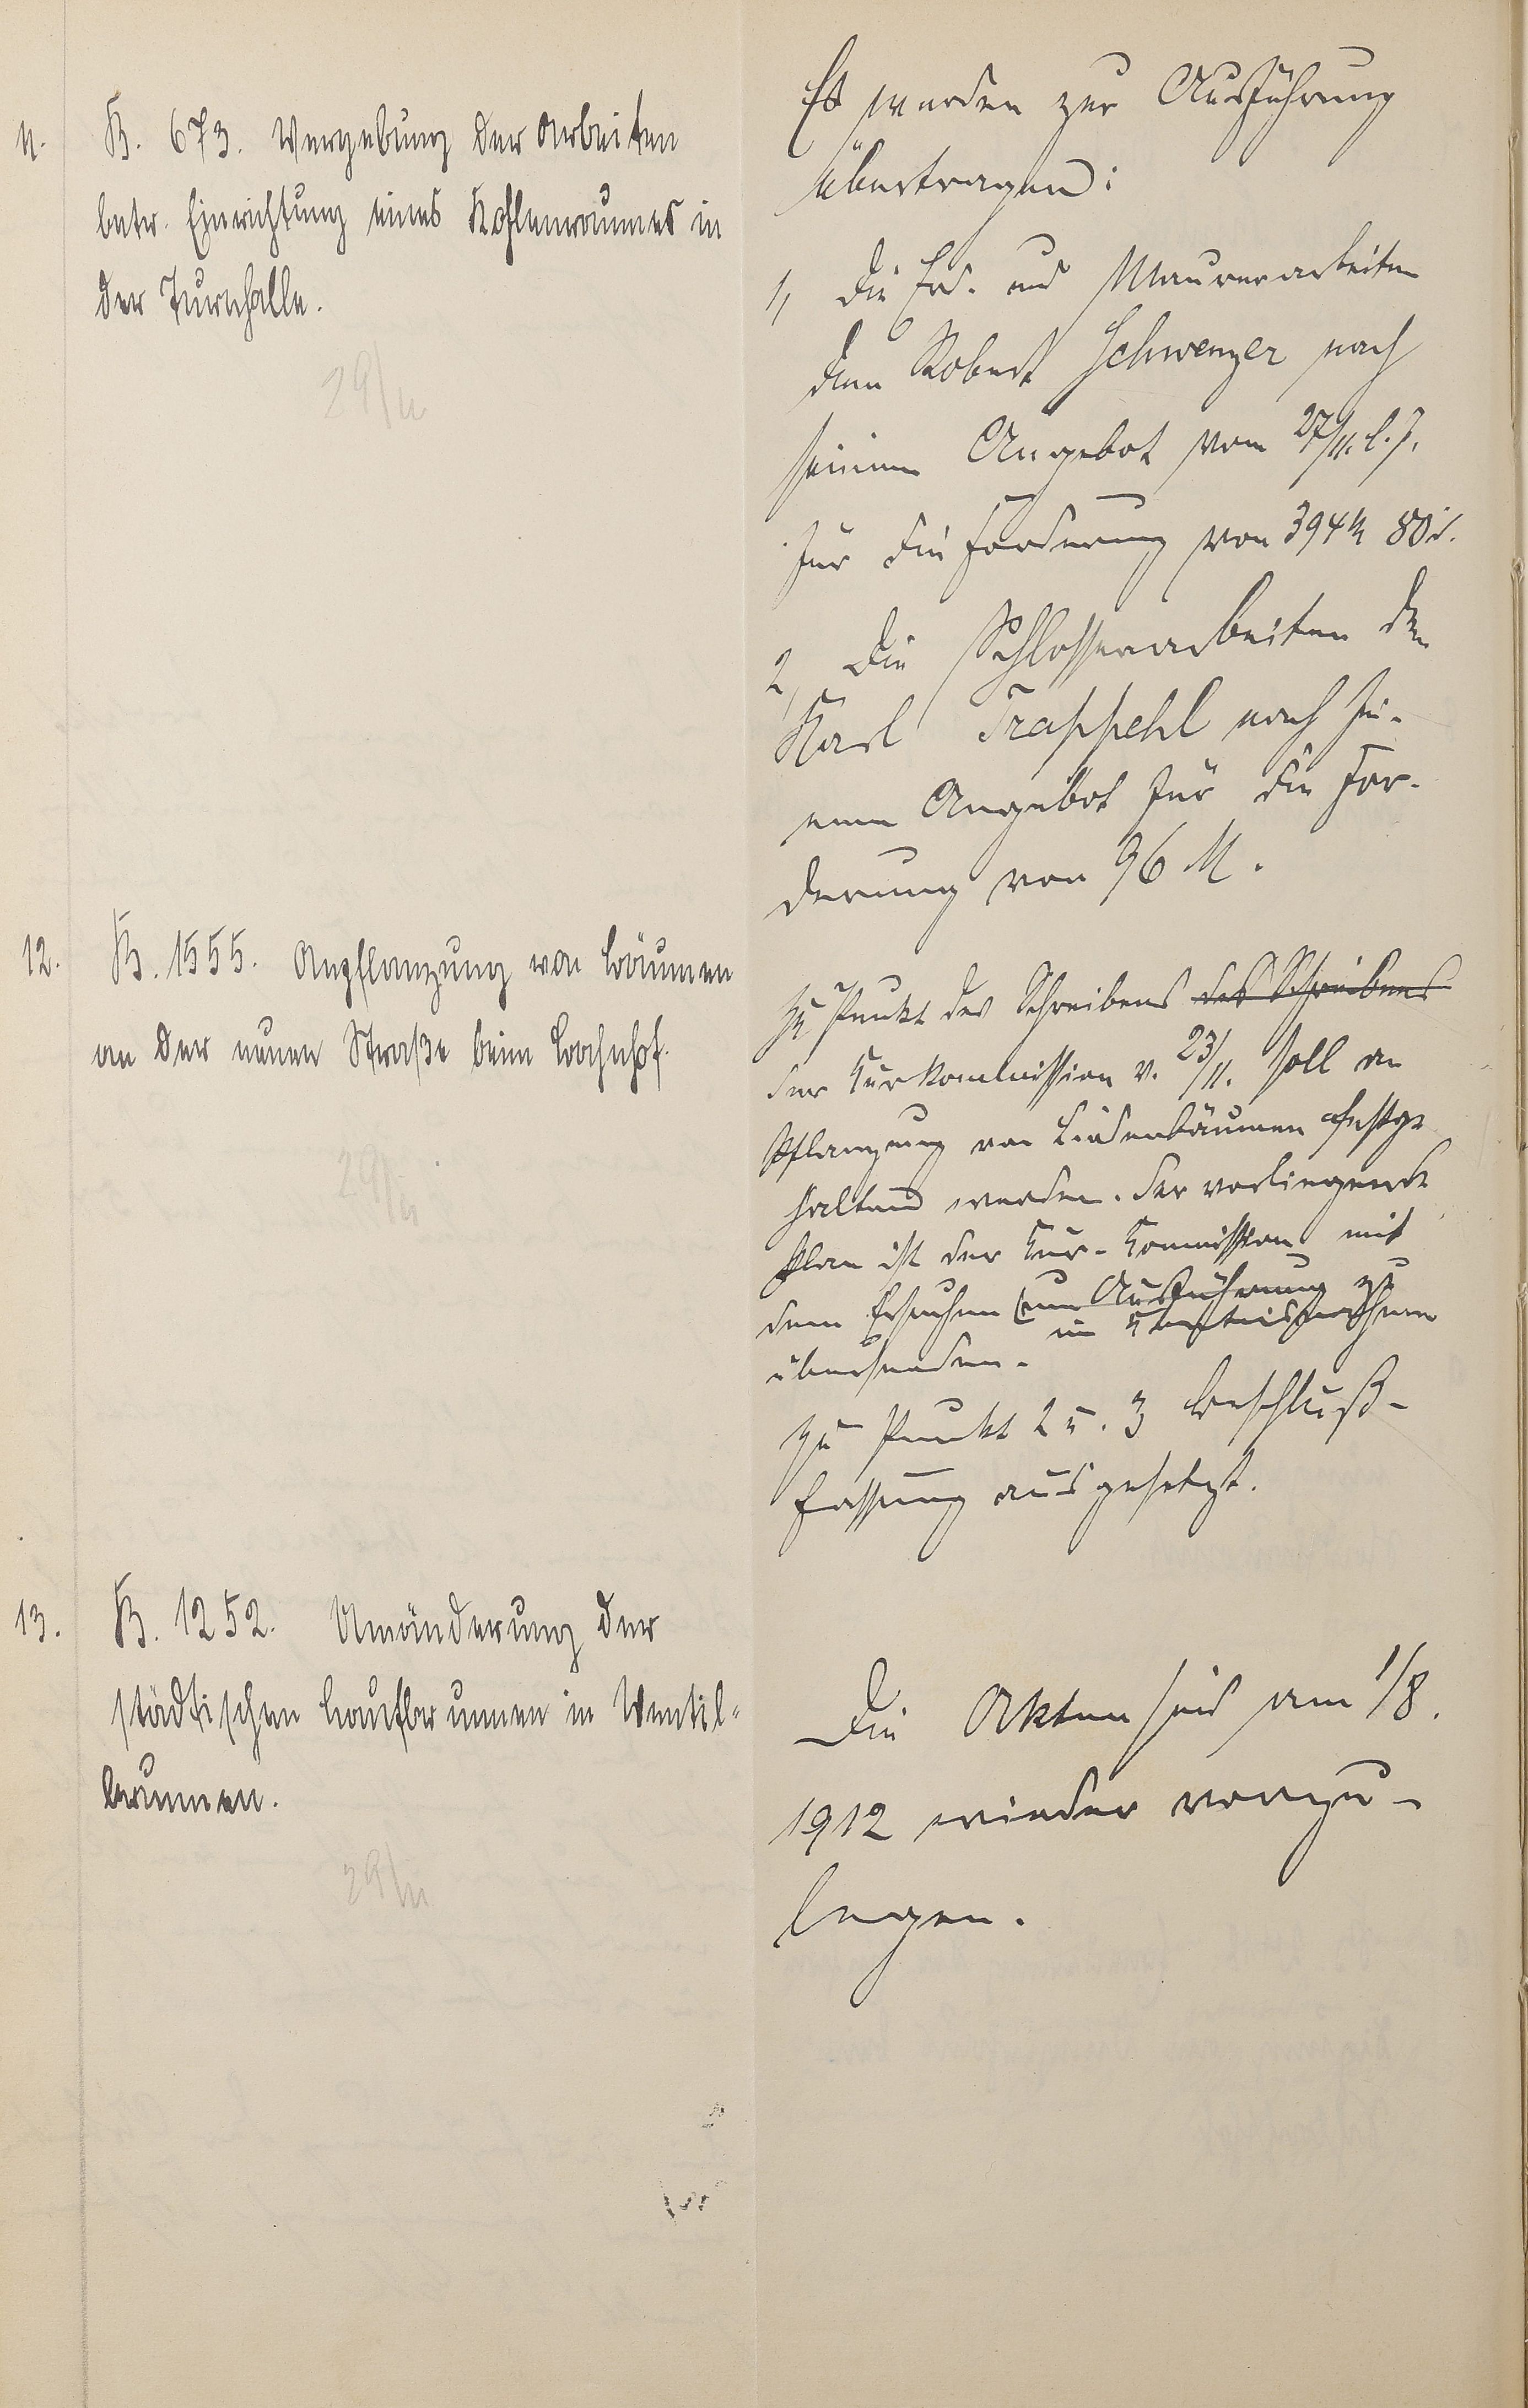 11.
B. 673. Vergebung der Arbeiten
betr. Einrichtung eines Kohlenraumes in
der Turnhalle.
29/11
Es werden zur Ausführung
übertragen:
1, die Erd- und Maurerarbeiten
dem Robert Schwenzer nach
seinem Angebot vom 27/11. l. J.
für die Forderung von 394 M 80 d.
2, die Schlosserarbeiten dem
Karl Trappehl nach sei-
nem Angebot für die For-
derung von 96 M.
12.
B. 1555. Anpflanzung von Bäumen
an der neuen Straße beim Bahnhof.
29/11
Zu Punkt des Schreibens des Schreibens
der Kurkommission v. 23/11. soll an
Pflanzung von Lindenbäumen festge
halten werden. Der vorliegende
Plan ist der Kur-Kommission mit
dem Ersuchen um Ausführung zu
übersenden.
Zu Punkt 2 u. 3 Beschluß-
fassung ausgesetzt.
13.
B. 1252. Umänderung der
städtischen Laufbrunnen in Ventil-
brunnen.
29/11
Die Akten sind am 1/8.
1912 wieder vorzu-
legen.